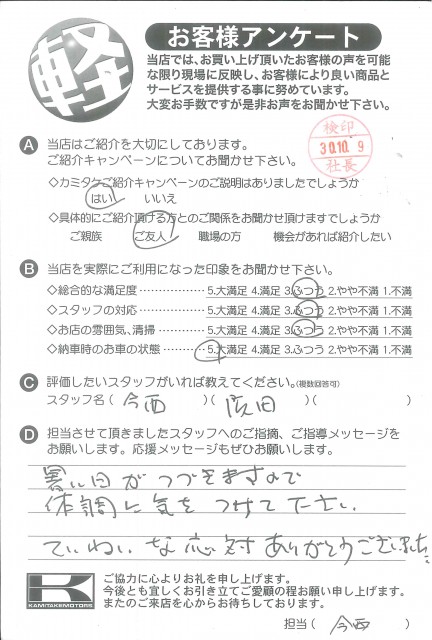 軽
お客様アンケート
当店では、お買い上げ頂いたお客様の声を可能
な限り現場に反映し、お客様により良い商品と
サービスを提供する事に努めています。
大変お手数ですが是非お声をお聞かせ下さい。
検印
30.10.9
社長
A 当店はご紹介を大切にしております。
ご紹介キャンペーンについてお聞かせ下さい。
◇カミタケご紹介キャンペーンのご説明はありましたでしょうか
はい いいえ
◇具体的にご紹介頂ける方とのご関係をお聞かせ頂けますでしょうか
ご親族 ご友人 職場の方 機会があれば紹介したい
B 当店を実際にご利用になった印象をお聞かせ下さい。
◇総合的な満足度‥‥‥‥‥5.大満足 4.満足 3.ふつう 2.やや不満 1.不満
◇スタッフの対応‥‥‥‥‥5.大満足 4.満足 3.ふつう 2.やや不満 1.不満
◇お店の雰囲気、清掃‥‥‥5.大満足 4.満足 3.ふつう 2.やや不満 1.不満
◇納車時のお車の状態‥‥‥5.大満足 4.満足 3.ふつう 2.やや不満 1.不満
C 評価したいスタッフがいれば教えてください。(複数回答可)
スタッフ名( 今西 )( 廣田 )( )
D 担当させて頂きましたスタッフへのご指摘、ご指導メッセージを
お願いします。応援メッセージもぜひお願いします。
暑い日がつづきますので
体調に気をつけて下さい。
ていねいな応対ありがとうございました。
K
KAMITAKEMOTORS
ご協力に心よりお礼を申し上げます。
今後とも宜しくお引き立てご愛顧の程お願い申し上げます。
またのご来店を心からお待ちしております。
担当( 今西 )